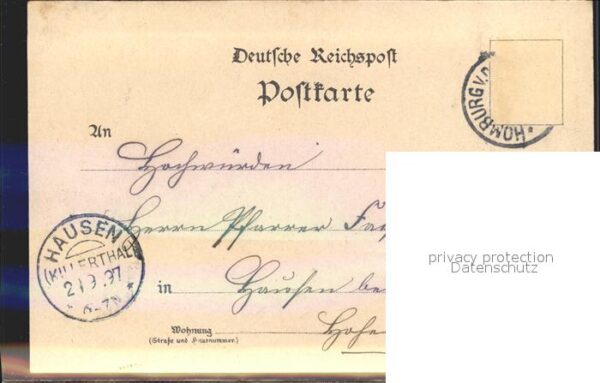 Deutsche Reichspost
Postkarte
HOMBURG V.D.
An
Hochwürden
Herrn Pfarrer
HAUSEN
(KILLERTHAL)
21 9. 97
6-7N
in Hausen be
Hohe
Wohnung
(Straße und Hausnummer.)
privacy protection
Datenschutz